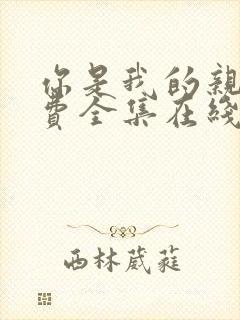 你是我的親
費全集在綫
西林葳蕤